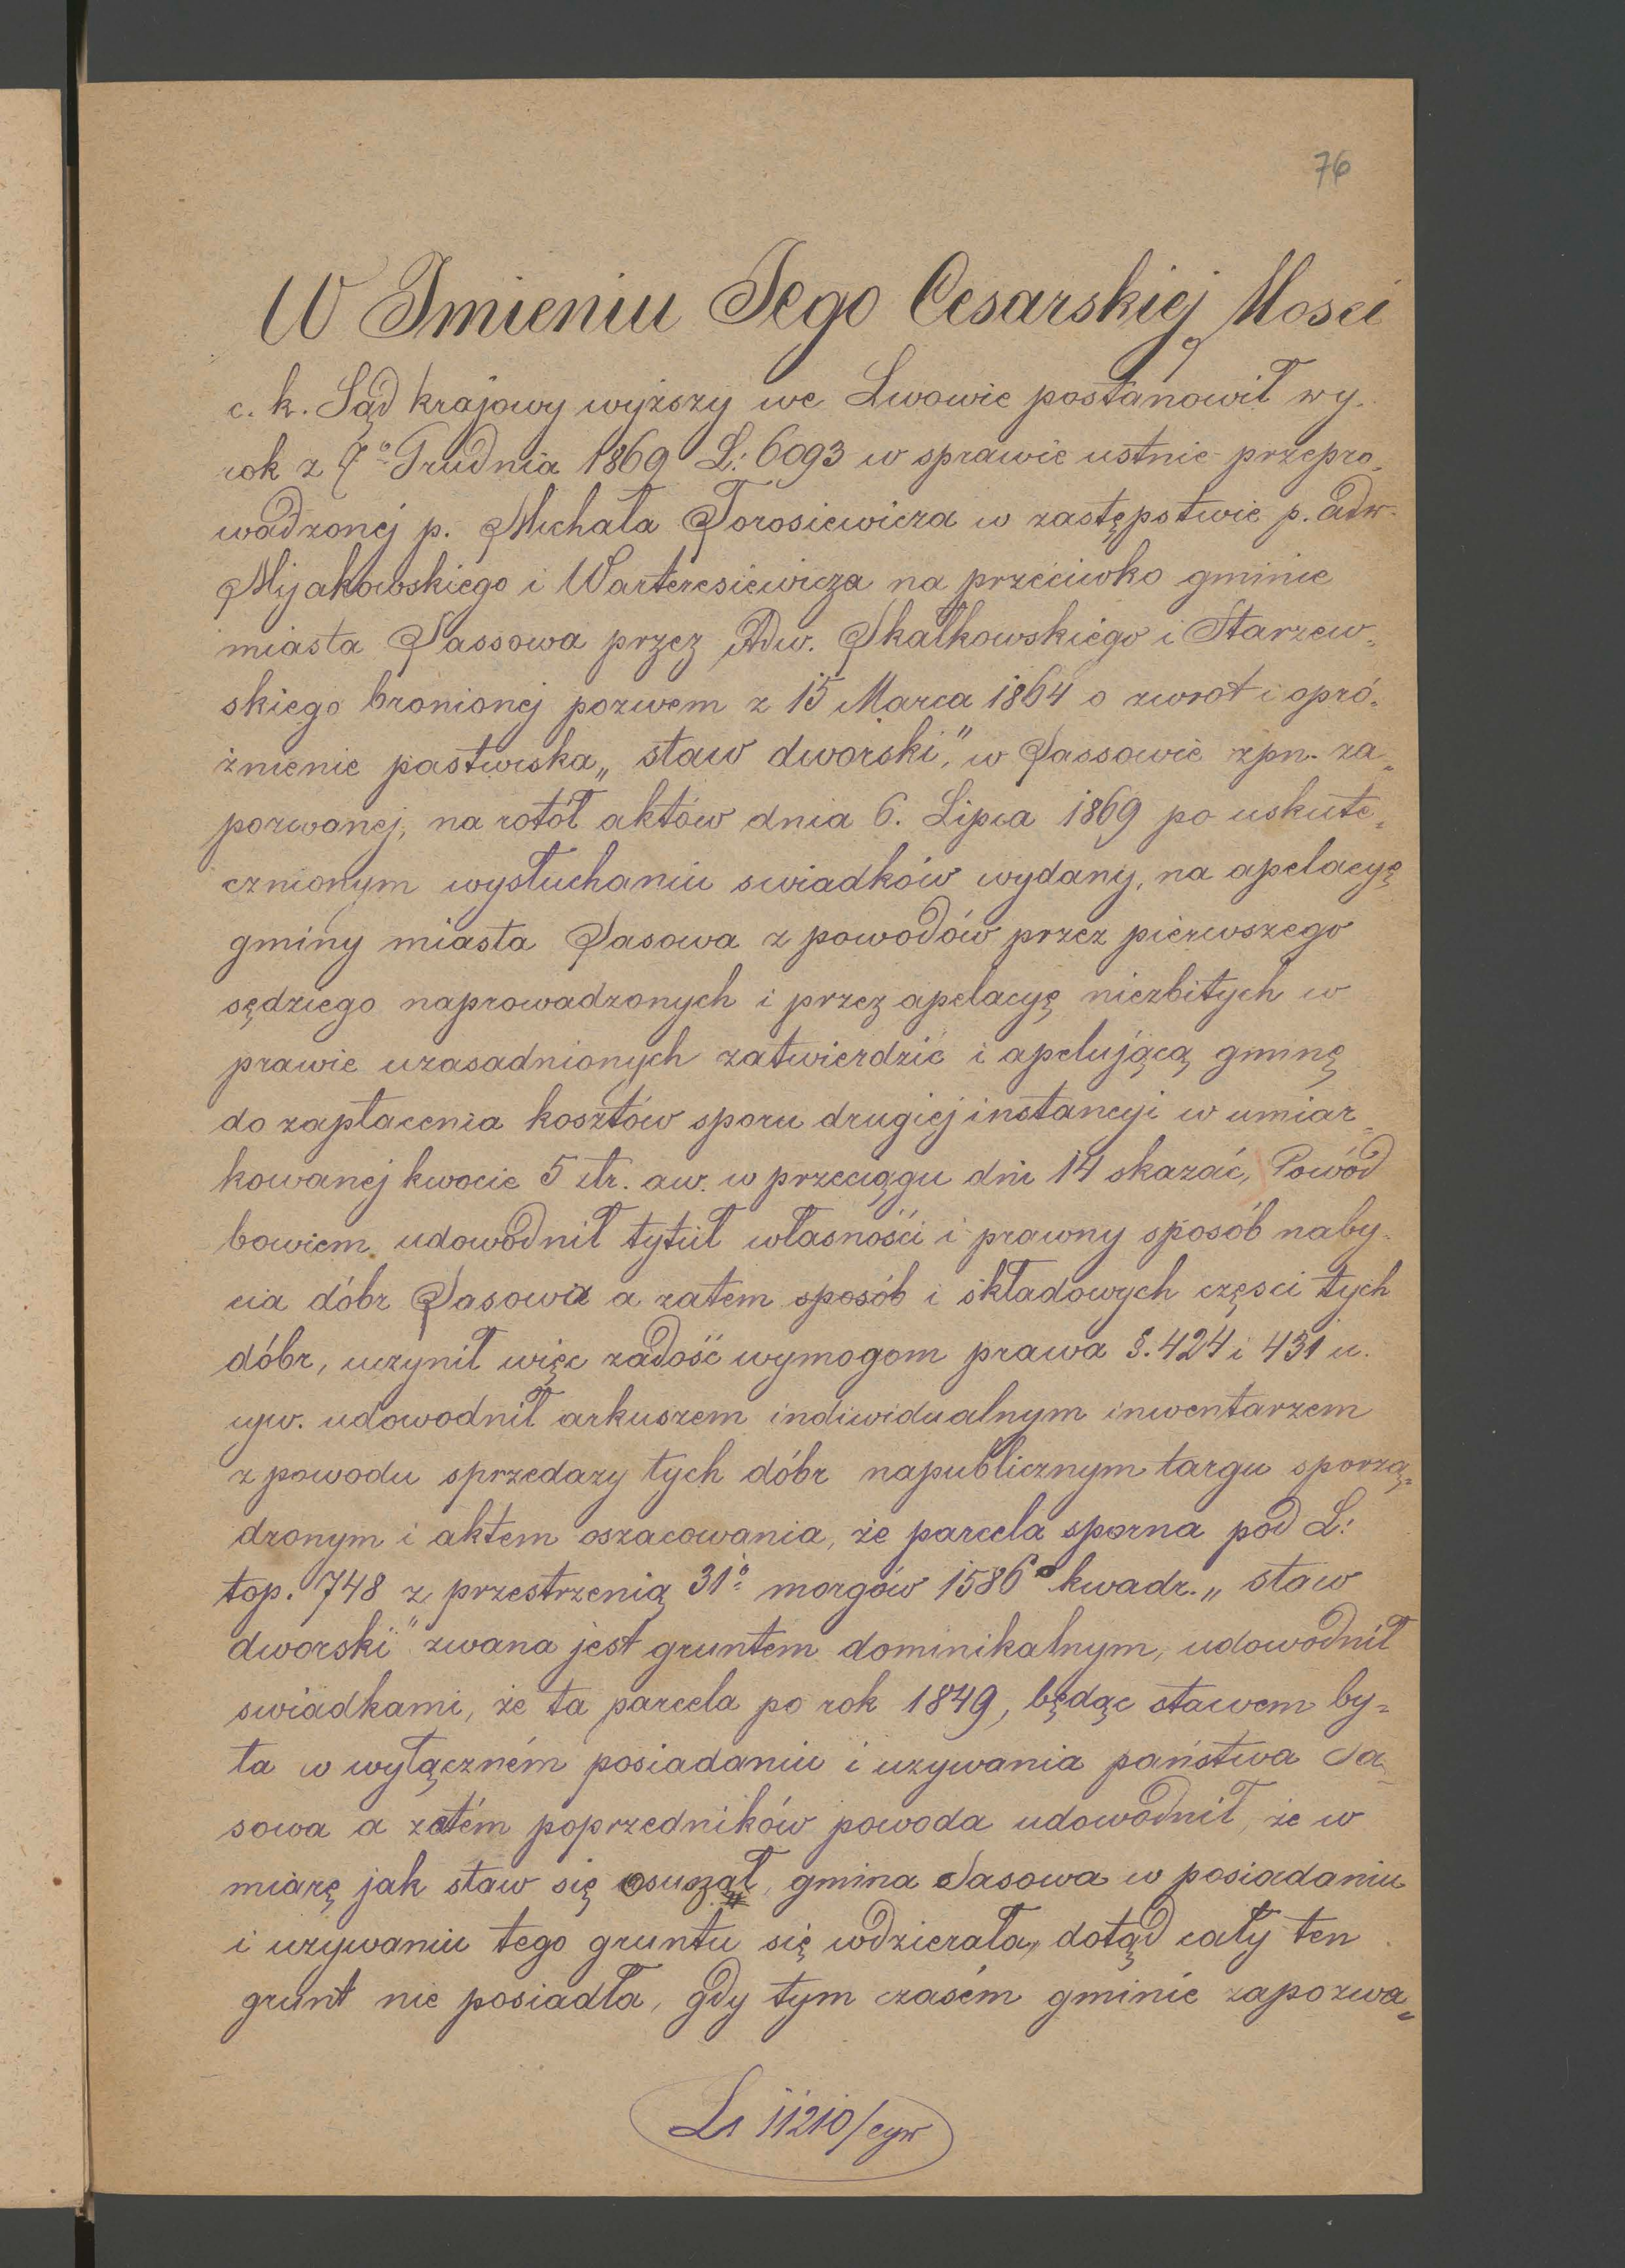 76
W Imieniu Jego Cesarskiej Mosci
c. k. Sąd krajowy wyższy we Lwowie postanowił wy-
rok z 7º Grudnia 1869 L: 6093 w sprawie ustnie przepro-
wadzonej p. Michała Torosiewicza w zastępstwie p. adw.
Mijakowskiego i Warteresiewicza na przeciwko gminie
miasta Sassowa przez Adw. Skałkowskiego i Starzew-
skiego bronionej pozwem z 15 Marca 1864 o zwrot i opró-
żnienie pastwiska „staw dworski", w Sassowie zpn. za-
pozwanej, na rotół aktów dnia 6. Lipca 1869 po uskute-
cznionym wysłuchaniu swiadków wydany, na apelacyę
gminy miasta Sasowa z powodów przez pierwszego
sędziego naprowadzonych i przez apelacyę niezbitych w
prawie uzasadnionych zatwierdzić i apelującą gminę
do zapłacenia kosztów sporu drugiej instancyi w umiar-
kowanej kwocie 5 złr. aw. w przeciągu dni 14 skazać, Powód
bowiem udowodnił tytuł własności i prawny sposób naby-
cia dóbr Sasowa a zatem sposób i składowych częsci tych
dóbr, uczynił więc zadość wymogom prawa §. 424 i 431 u.
cyw. udowodnił arkuszem indiwidualnym inwentarzem
z powodu sprzedazy tych dóbr napublicznym targu sporzą-
dzonym i aktem oszacowania, że parcela sporna pod L:
top. 748 z przestrzenią 31º morgów 1586º kwadr. „staw
dworski" zwana jest gruntem dominikalnym, udowodnił
swiadkami, że ta parcela po rok 1849, będąc stawem by-
ła w wyłączném posiadaniu i uzywania państwa Sa-
sowa a zatém poprzedników powoda udowodnił, że w
miarę jak staw się osuszał, gmina Sasowa w posiadaniu
i uzywaniu tego gruntu się wdzierała, dotąd cały ten
grunt nie posiadła, gdy tym czasém gminie zapozwa-
L1 11210/cyw